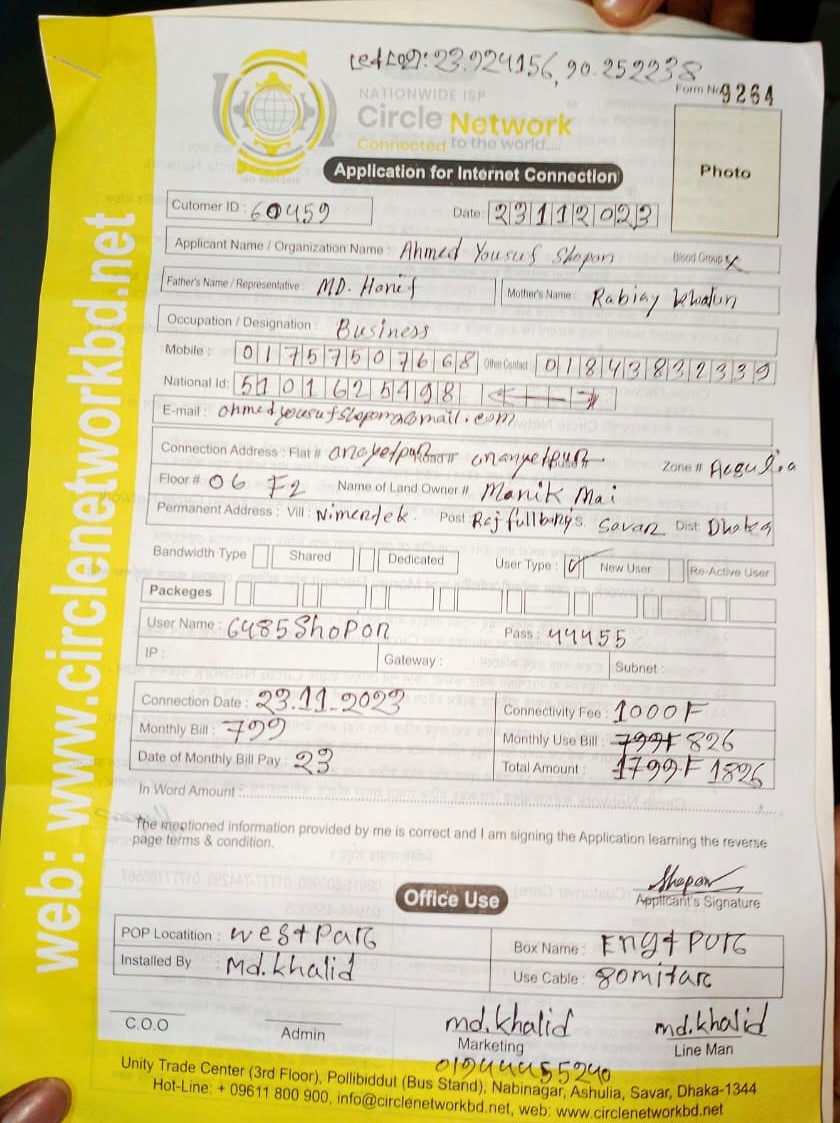 23.924156, 90.252238
Form No 9264
NATIONWIDE ISP
Circle Network
Connected to the world....
Application for Internet Connection
Photo
Cutomer ID : 60459
Date: 23112023
Applicant Name / Organization Name : Ahmed Yousuf Shopon Blood Group X
Father's Name / Representative : MD. Hanif
Mother's Name : Rabiay Khatun
Occupation / Designation : Business
Mobile : 01757507668 Other Contact 01843832339
National Id: 5101625498
E-mail :
Connection Address : Flat # Zone #
Floor # 06 F2 Name of Land Owner # Manik Mai
Permanent Address : Vill : Post : P.S. Savar Dist: Dhaka
Bandwidth Type Shared Dedicated User Type : New User Re-Active User
Packeges
User Name : 6485Shopon Pass : 44455
IP : Gateway : Subnet :
Connection Date : 23.11.2023 Connectivity Fee : 1000F
Monthly Bill : 799 Monthly Use Bill : 799F 826
Date of Monthly Bill Pay : 23 Total Amount : 1799F 1826
In Word Amount :
The mentioned information provided by me is correct and I am signing the Application learning the reverse
page terms & condition.
Shopon
Applicant's Signature
Office Use
POP Locatition : westparc Box Name :
Installed By : Md.khalid Use Cable : 80mitarc
md.khalid md.khalid
C.O.O Admin Marketing Line Man
01944455240
Unity Trade Center (3rd Floor), Pollibiddut (Bus Stand), Nabinagar, Ashulia, Savar, Dhaka-1344
Hot-Line: + 09611 800 900, info@circlenetworkbd.net, web: www.circlenetworkbd.net
web: www.circlenetworkbd.net